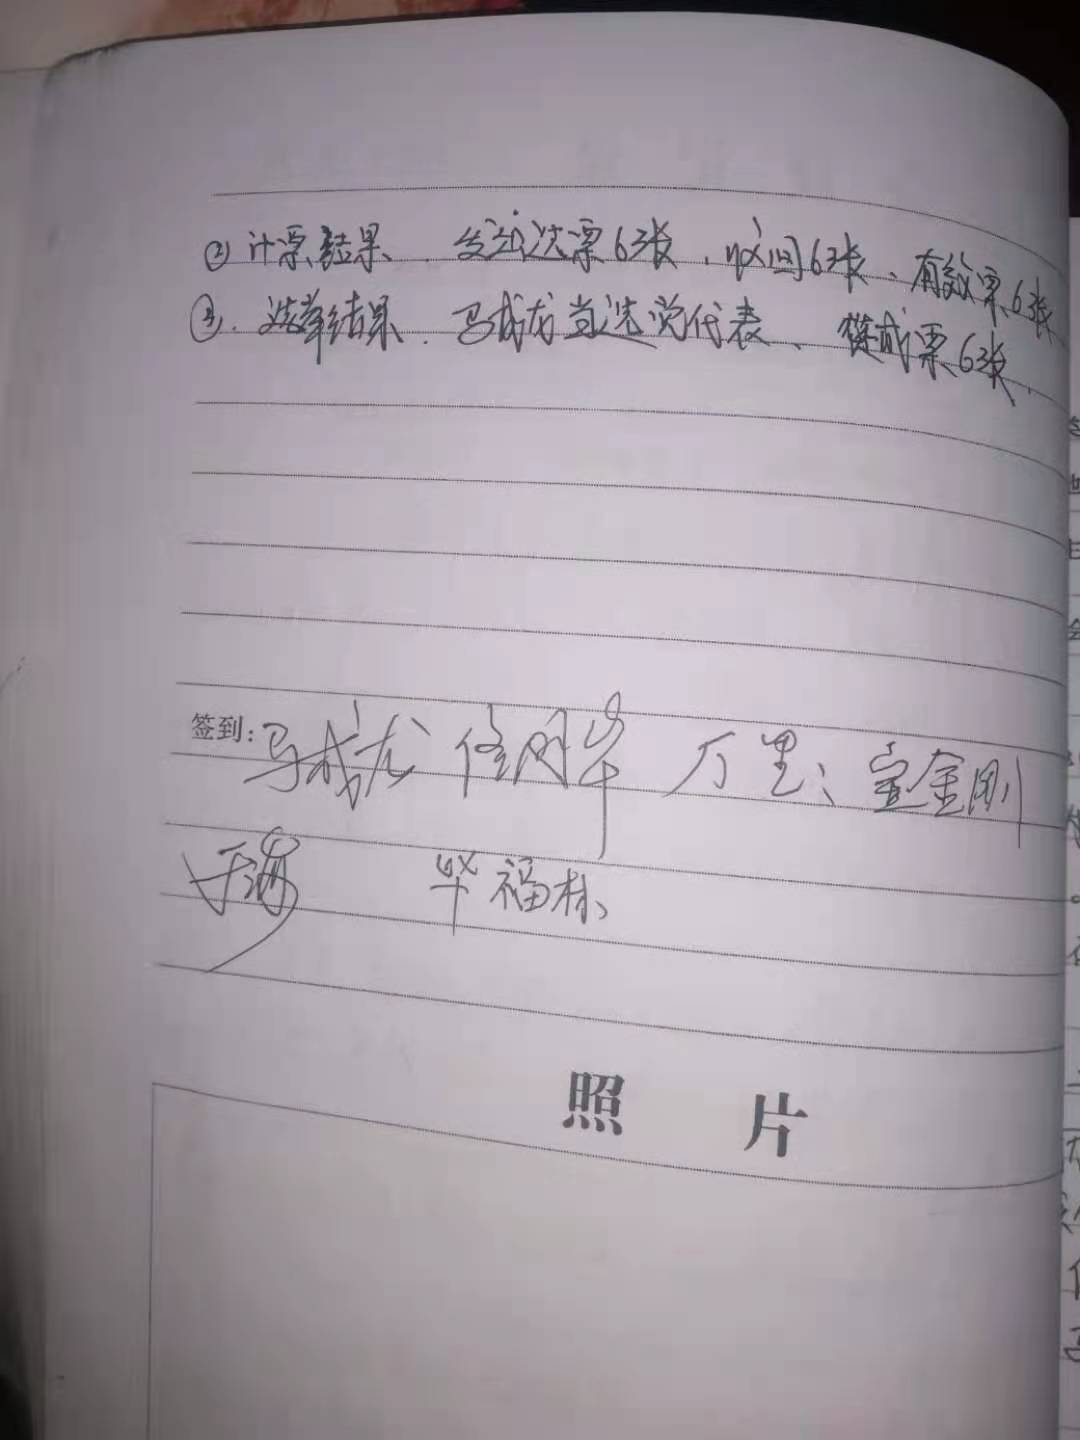 ② 计票结果、发出选票6张、收回6张、有效票6张
③、选举结果、马成龙当选党代表、赞成票6张、
签到：马成龙 佟明华 万里、宝金刚
于海 毕福林
照 片